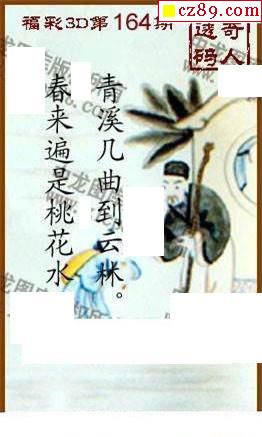 cz89.com
福彩3D第164期
奇人透码
青溪几曲到云林。
春来遍是桃花水